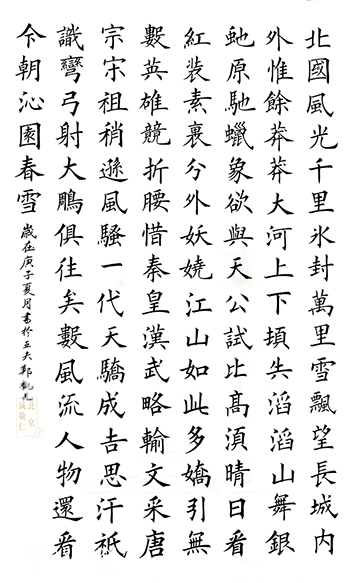 北國風光千里氷封萬里雪飄望長城内
外惟餘莽莽大河上下頓失滔滔山舞銀
虵原馳蠟象欲與天公試比高湏晴日看
紅裝素裹分外妖嬈江山如此多嬌引無
數英雄競折腰惜秦皇漢武略輸文采唐
宗宋祖稍遜風騷一代天驕成吉思汗祇
識彎弓射大鵰俱往矣數風流人物還看
今朝沁園春雪
歲在庚子夏月書於
北京
誠敬仁